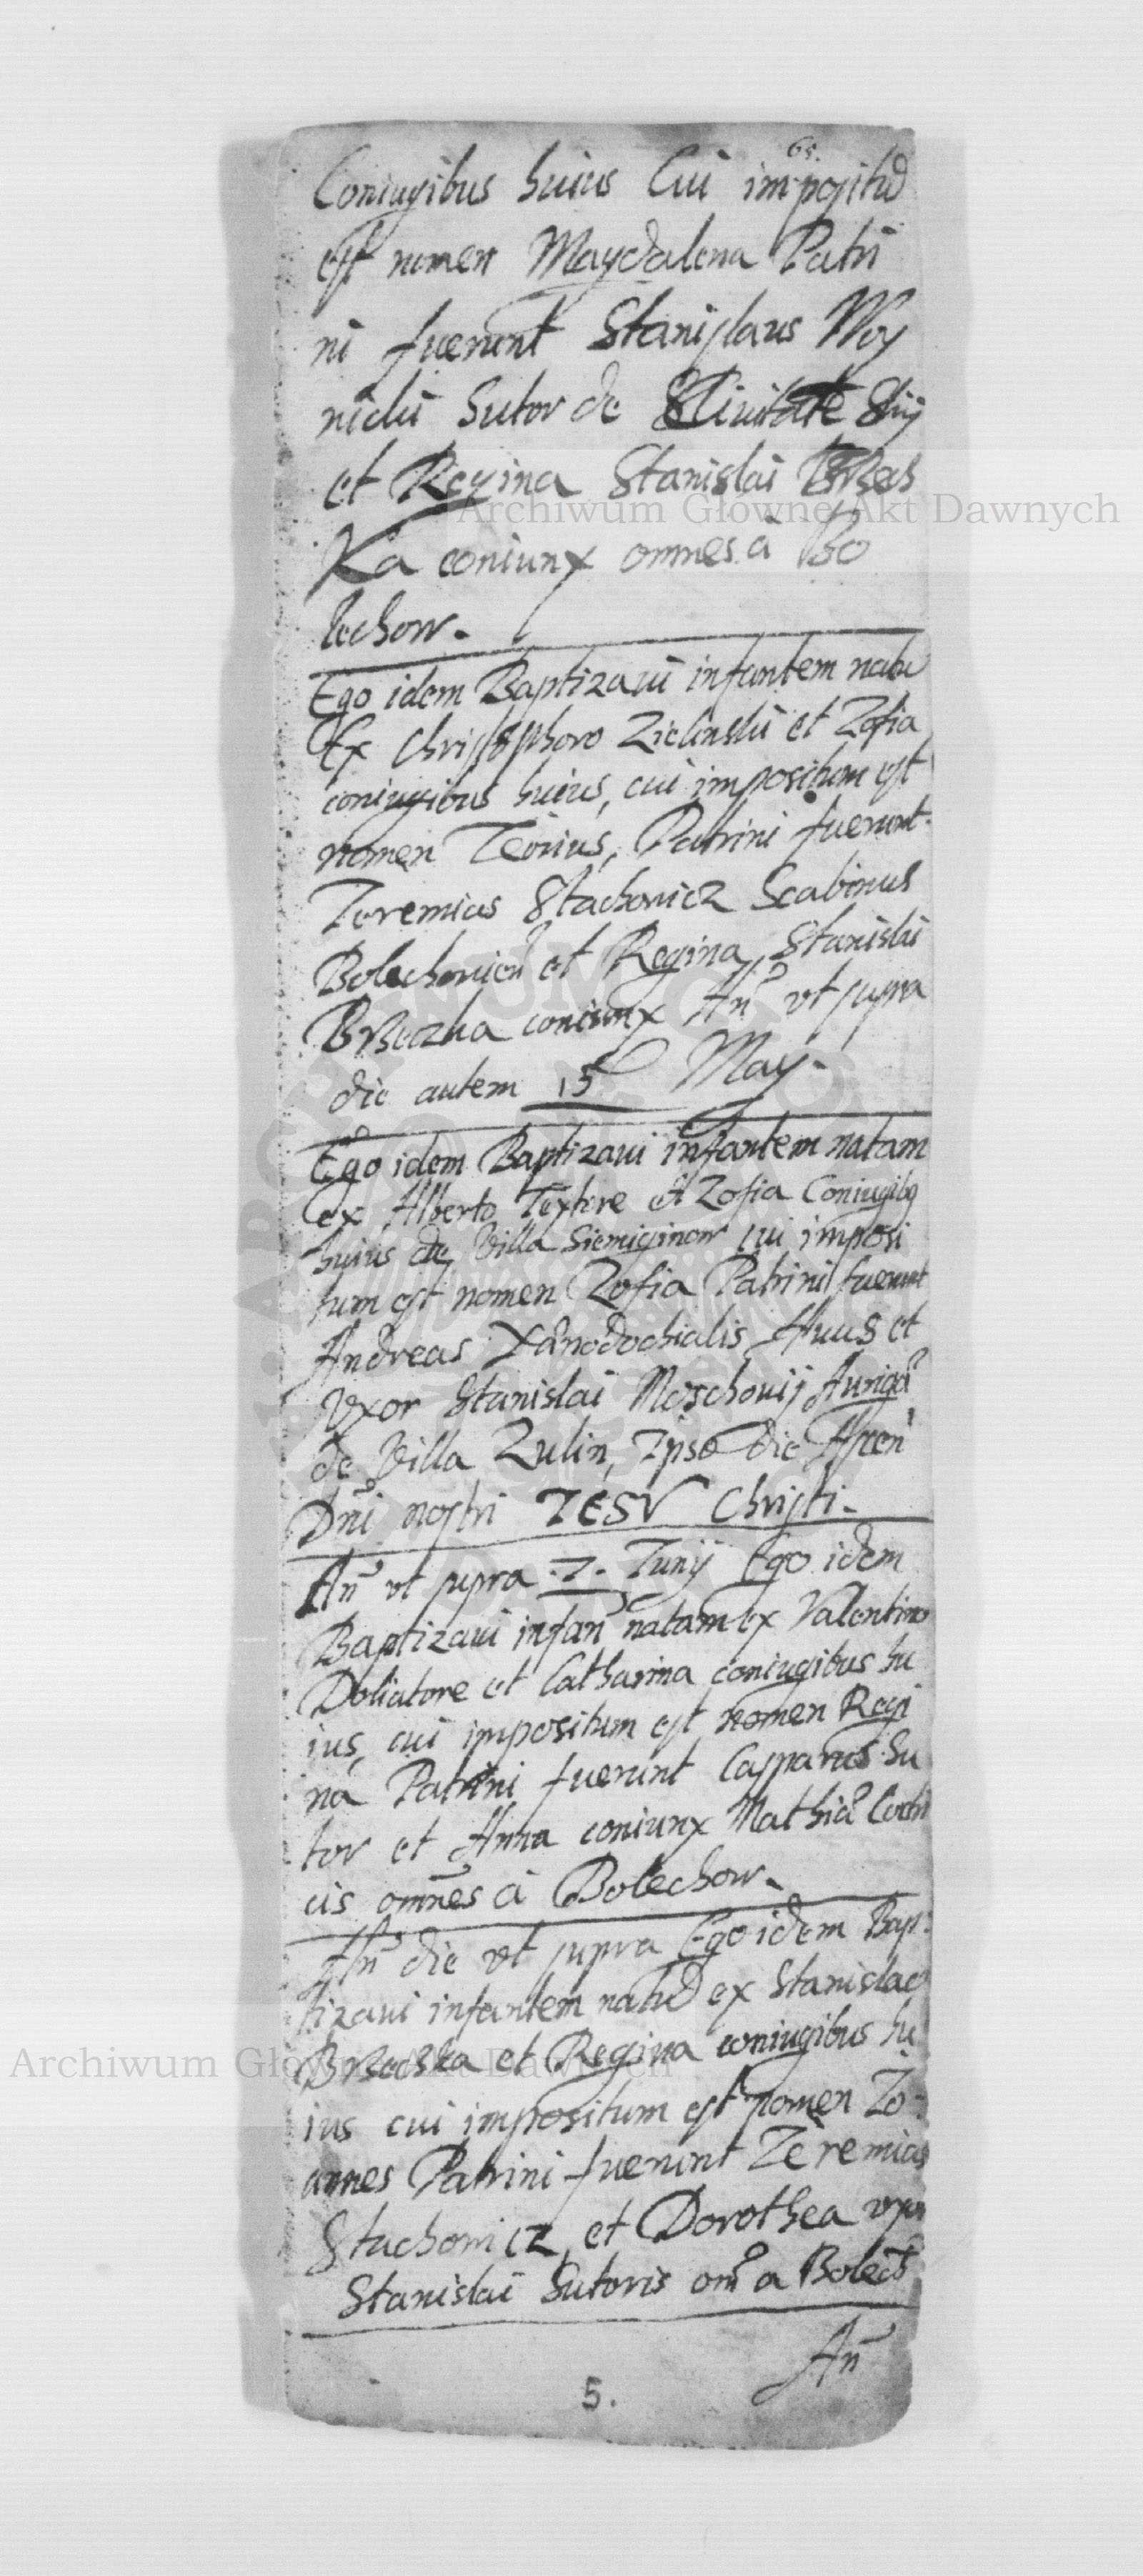 65.
Coniugibus huius Cui impositũ
est nomen Magdalena Patri
ni fuerunt Stanislaus Woy
nicki Sutor de Civitate Stry
et Regina Stanislai Brzes
Ka coniunx omnes à Bo
lechow.
Ego idem Baptizavi infantem natũ
Ex Christophoro Zielinski et Zofia
coniugibus huius, cui impositum est
nomen Patrini fuerunt
Jeremias Stachowicz Scabinus
Bolechovien̄ et Regina Stanislai
coniunx An̄o vt supra
die autem 15 May.
Ego idem Baptizavi infantem natam
ex Alberto Textore et Zofia Coniugibꝯ
huius de Villa Siemiginow cui imposi
tum est nomen Zofia Patrini fuerunt
Andreas Xænodochialis Avus et
Vxor Stanislai Moschovij Aurigæ
de Villa Zulin, Ipso Die Ascen̄
Dn̄i nostri IESV Christi.
An̄o vt supra .7. Junij Ego idem
Baptizavi infan̄ natam ex Valentino
Doliatore et Catharina coniugibus hu
ius, cui impositum est nomen Regi
na Patrini fuerunt Casparus Su
tor et Anna coniunx Mathiæ
cis omnes à Bolechow.
An̄o die vt supra Ego idem Bap:
tizavi infantem natũ ex Stanislao
et Regina coniugibus hu
ius cui impositum est nomen Jo-
annes Patrini fuerunt Jeremias
Stachowicz, et Dorothea vxor
Stanislai Sutoris om̄ a Bolech
An̄
5.
Archiwum Głowne Akt Dawnych
Archiwum Głowne Akt Dawnych